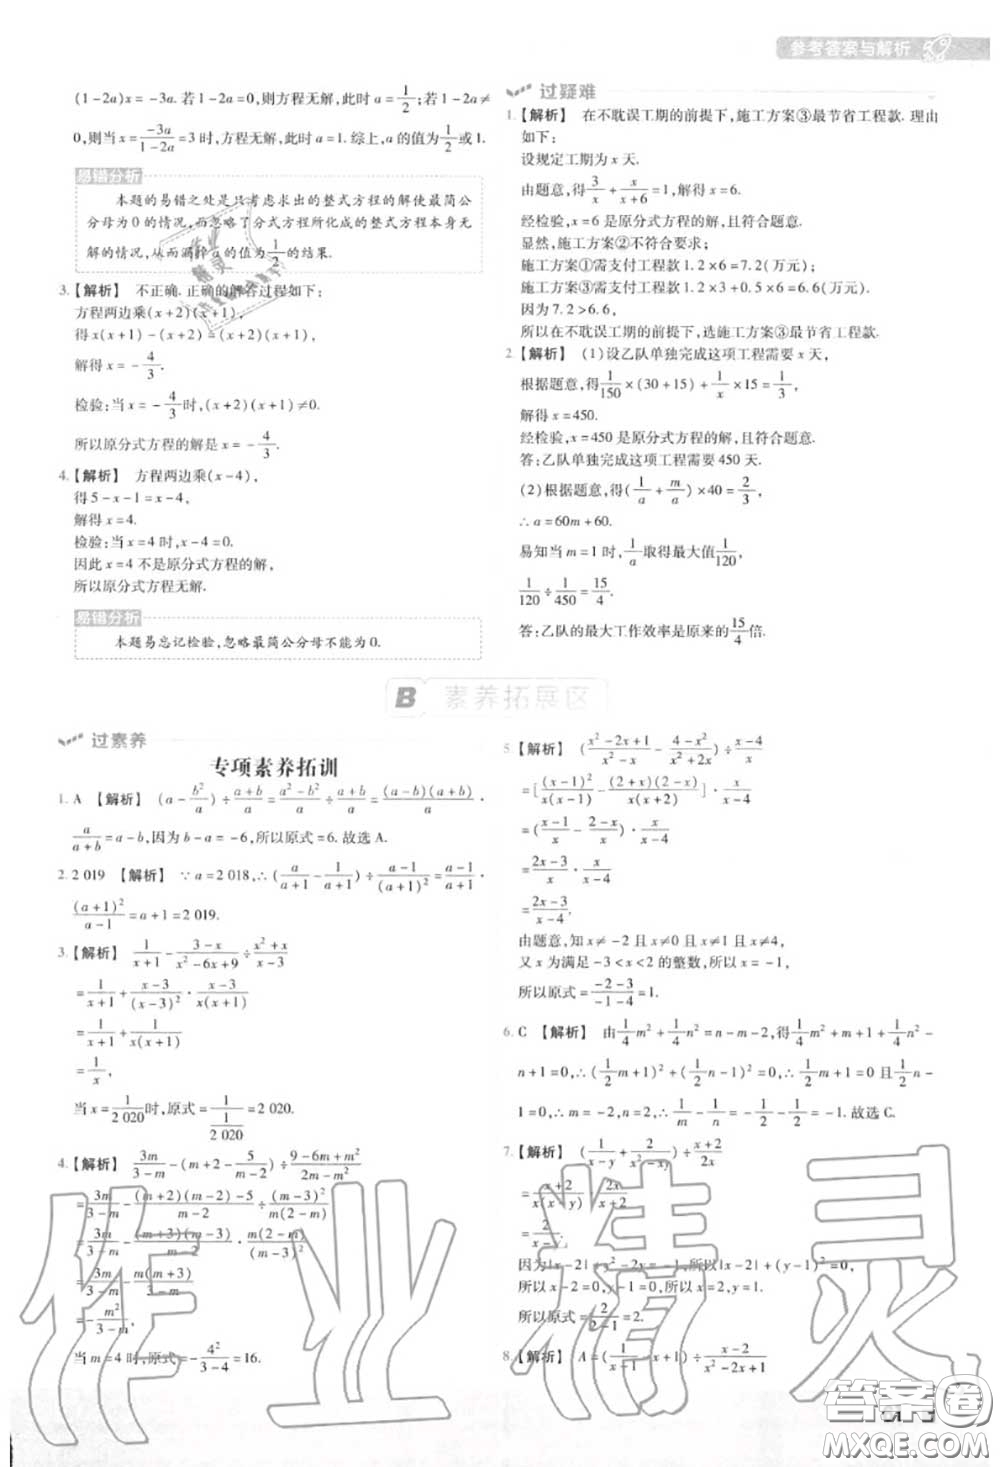 参考答案与解析
(1-2a)x=-3a.若1-2a=0,则方程无解,此时a=1/2;若1-2a≠
0,则当x=-3a/(1-2a)=3时,方程无解,此时a=1.综上,a的值为1/2或1.
易错分析
本题的易错之处是只考虑求出的整式方程的解使最简公
分母为0的情况,而忽略了分式方程所化成的整式方程本身无
解的情况,从而漏掉a的值为1/2的结果.
3.【解析】 不正确.正确的解答过程如下:
方程两边乘(x+2)(x+1),
得x(x+1)-(x+2)=(x+2)(x+1),
解得x=-4/3.
检验:当x=-4/3时,(x+2)(x+1)≠0.
所以原分式方程的解是x=-4/3.
4.【解析】 方程两边乘(x-4),
得5-x-1=x-4,
解得x=4.
检验:当x=4时,x-4=0.
因此x=4不是原分式方程的解.
所以原分式方程无解.
易错分析
本题易忘记检验,忽略最简公分母不能为0.
过疑难
1.【解析】 在不耽误工期的前提下,施工方案③最节省工程款.理由
如下:
设规定工期为x天.
由题意,得3/x+x/(x+6)=1,解得x=6.
经检验,x=6是原分式方程的解,且符合题意.
显然,施工方案②不符合要求;
施工方案①需支付工程款1.2×6=7.2(万元);
施工方案③需支付工程款1.2×3+0.5×6=6.6(万元).
因为7.2>6.6,
所以在不耽误工期的前提下,选施工方案③最节省工程款.
2.【解析】 (1)设乙队单独完成这项工程需要x天,
根据题意,得1/150×(30+15)+1/x×15=1/3,
解得x=450.
经检验,x=450是原分式方程的解,且符合题意.
答:乙队单独完成这项工程需要450天.
(2)根据题意,得(1/a+m/a)×40=2/3,
∴a=60m+60.
易知当m=1时,1/a取得最大值1/120,
1/120÷1/450=15/4.
答:乙队的最大工作效率是原来的15/4倍.
B 素养拓展区
过素养
专项素养拓训
1. A 【解析】 (a-b²/a)÷(a+b)/a=(a²-b²)/a÷(a+b)/a=(a-b)(a+b)/a·
a/(a+b)=a-b,因为b-a=-6,所以原式=6.故选A.
2. 2 019 【解析】 ∵a=2 018,∴(a/(a+1)-1/(a+1))÷(a-1)/(a+1)²=(a-1)/(a+1)·
(a+1)²/(a-1)=a+1=2 019.
3.【解析】 1/(x+1)-(3-x)/(x²-6x+9)÷(x²+x)/(x-3)
=1/(x+1)+(x-3)/(x-3)²·(x-3)/x(x+1)
=1/(x+1)+1/x(x+1)
=1/x,
当x=1/2 020时,原式=1/(1/2 020)=2 020.
4.【解析】 3m/(3-m)-(m+2-5/(m-2))÷(9-6m+m²)/(2m-m²)
=3m/(3-m)-((m+2)(m-2)-5)/(m-2)÷(m-3)²/m(2-m)
=3m/(3-m)+(m+3)(m-3)/(m-2)·m(m-2)/(m-3)²
=3m/(3-m)-m(m+3)/(3-m)
=-m²/(3-m).
当m=4时,原式=-4²/(3-4)=16.
5.【解析】 ((x²-2x+1)/(x²-x)-(4-x²)/(x²+2x))÷(x-4)/x
=[(x-1)²/x(x-1)-(2+x)(2-x)/x(x+2)]·x/(x-4)
=((x-1)/x-(2-x)/x)·x/(x-4)
=(2x-3)/x·x/(x-4)
=(2x-3)/(x-4).
由题意,知x≠-2且x≠0且x≠1且x≠4,
又x为满足-3<x<2的整数,所以x=-1.
所以原式=(-2-3)/(-1-4)=1.
6. C 【解析】 由1/4m²+1/4n²=n-m-2,得1/4m²+m+1+1/4n²-
n+1=0,∴(1/2m+1)²+(1/2n-1)²=0,∴1/2m+1=0且1/2n-
1=0,∴m=-2,n=2,∴1/m-1/n=-1/2-1/2=-1.故选C.
7.【解析】 (1/(x-y)+2/(x²-xy))÷(x+2)/2x
=(x+2)/x(x-y)·2x/(x+2)
=2/(x-y).
因为|x-2|+y²-2y=-1,所以|x-2|+(y-1)²=0,
所以x-2=0,y-1=0,所以x=2,y=1.
所以原式=2/(2-1)=2.
作业精灵
答案圈
MXQE.COM